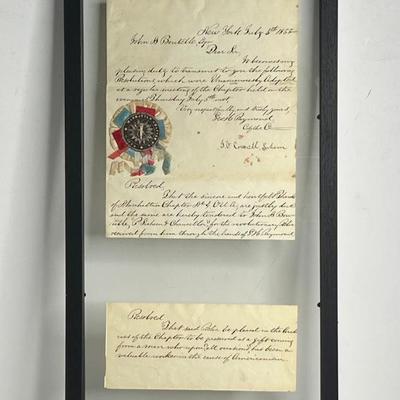 New York July 5th 1855
John B
Dear Sir
It becomes my
pleasing duty to transmit to you the following
Resolutions which were Unanimously Adopted
at a regular meeting of the Chapter held on the
evening Thursday July 5th
Very respectfully and truly yours,
Raymond
Resolved,
That the sincere and heartfelt thanks
of Manhattan Chapter No 4 O U A, are justly due
and the same are hereby tendered to John B
Chancellor, for the revolutionary
received from him through the hands of Raymond
Resolved,
That said be placed in the
of the Chapter to be preserved as a gift coming
from a man who upon all occasions, has been a
valuable worker in the cause of Americanism